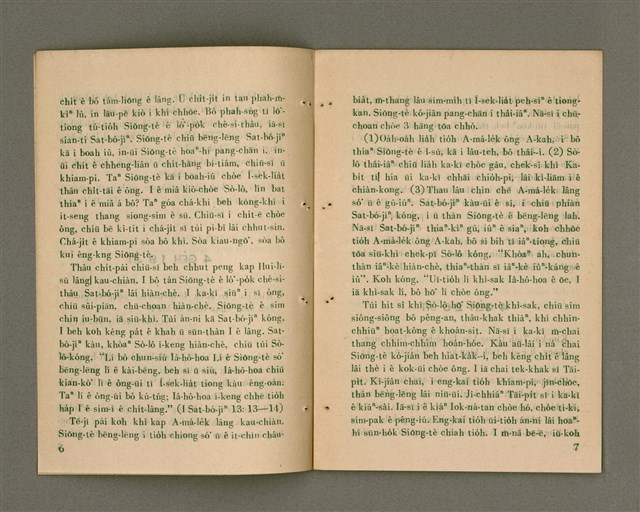 chit ê bô tám-liōng ê lâng. Ū chit-jit in tau phah-m̄-
kìⁿ lû, in lāu-pē kiò i khì chhōe. Bô phah-sǹg tī lō͘-
tiong tú-tio̍h Siōng-tè ê lô͘-po̍k chè-si-thâu, iā-sī
sian-ti Sat-bó-jíⁿ. Siōng-tè chiū bēng-lēng Sat-bó-jíⁿ
kā i boah iû, in-ūi Siōng-tè hoaⁿ-hí pang-chān i, in-
ūi chit ê chheng-liân ū chit-hāng bí-tiám, chiū-sī ū
khiam-pi. Taⁿ Siōng-tè kā i boah-iû chòe Í-sek-lia̍t
thâu chi̍t-tāi ê ông. I ê miâ kiò-chòe Sò-lô, lín bat
thiaⁿ i ê miâ á bô? Taⁿ góa chá-khí beh kóng-khí i
it-seng thang siong-sim ê sū. Chiū-sī i chi̍t-ē chòe
ông, chiū bē kì-tit i chá-sî sī túi pi-bî lâi chhut-sin.
Chá-ji̍t ê khiam-pi sòa bô khì. Sòa kiau-ngō͘, sòa bô
kui êng-kng Siōng-tè.
Thâu chi̍t-pái chiū-sī beh chhut peng kap Hui-lī-
sū lâng kau-chiàn. I bô tán Siōng-tè ê lô͘-po̍k chè-si-
thâu Sat-bó-jíⁿ lâi hiàn-chè. I ka-kī siūⁿ i sī ông,
chiū sūi-piān, chū-choan hiàn-chè. Siōng-tè ê sim
chin iu-būn, iā siū-khì. Túi án-ni kā Sat-bó-jíⁿ kóng,
I beh koh kéng pa̍t ê khah ū sūn-thàn I ê lâng. Sat-
bó-jíⁿ kàu, khòaⁿ Sò-lô í-keng hiàn-chè, chiū túi Sò-
lô-kóng, “Lí bô chun-siú Iâ-hô-hoa Lí ê Siōng-tè só͘
bēng-lēng lí ê kài-bēng, beh sī ū siú, Iâ-hô-hoa chiū
kian-kò͘ lí ê ông-ūi tī Í-sek-lia̍t tiong kàu éng-oán.
Taⁿ lí ê ông-ūi bô kú-tn̂g; Iâ-hô-hoa í-keng chhē tio̍h
ha̍p I ê sim-ì ê chi̍t-lâng.” (I Sat-bó-jíⁿ 13: 13—14)
Tē-jī pái koh khì kap A-má-le̍k lâng kau-chiàn.
Siōng-tè bēng-lēng i tio̍h chiong só͘ ū ê it-chīn chau-
6
bia̍t, m̄-thang lâu sím-mi̍h tī Í-sek-lia̍t peh-sìⁿ ê tiong-
kan. Siōng-tè kó-jiân pang-chān i thâi-iâⁿ. Nā-sī i chū-
choan chòe 3 hāng tōa chhò.
(1) Oa̍h-oa̍h lia̍h tio̍h A-má-le̍k ông A-kah, i bô
thiaⁿ Siōng-tè ê í-sù, kā i lâu-teh, bô thâi-i. (2) Sò-
lô thâi-iâⁿ chiū lia̍h ka-kī chòe gâu, chek-sî khì Ka-
bit tī hia ūi ka-kī chhāi chio̍h-pi, lâi kì-liām i ê
chiàn-kong. (3) Thau lâu chin chē A-má-le̍k lâng
só͘ ū ê gû-iûⁿ. Sat-bó-jíⁿ kàu-ūi ê sî, i chiū phiàn
Sat-bó-jíⁿ kóng, i ū thàn Siōng-tè ê bēng-lēng lah.
Nā-sī Sat-bó-jíⁿ thiaⁿ-kìⁿ gû, iûⁿ ê siaⁿ, koh chhōe
tio̍h A-má-le̍k ông A-kah, bô sī bih tī iâⁿ-tiong, chiū
tōa siū-khì chek-pī Sò-lô kóng, “Khòaⁿ ah, chun-
thàn iâⁿ-kè hiàn-chè, thiaⁿ-thàn sī iâⁿ-kè iûⁿ-káng ê
iû”. Koh kóng, “Ui-tio̍h lí khì-sak Iâ-hô-hoa ê ōe, I
iā khì-sak lí, bô hō͘ lí chòe ông.”
Túi hit sî khí Sò-lô hō͘ Siōng-tè khì-sak, chiū sim
siông-siông bô pêng-an, thâu-khak thiàⁿ, khí chhin-
chhiūⁿ hoat-kông ê khoán-sit. Nā-sī i ka-kī m̄-chai
thang chhim-chhim hoán-hóe. Kàu āu-lâi i nā chai
Siōng-tè kó-jiân beh hia̍t-ka̍k--i, beh kéng chi̍t ê lâng
lâi thè i ê kok-ūi chòe ông. I iā chai tek-khak sī Tāi-
pi̍t. Kì-jiân chai, i eng-kai tio̍h khiam-pi, jīn-chòe,
thàn bēng-lēng lâi niū-ūi. Ji-chhiáⁿ Tāi-pi̍t sī i ka-kī
ê kiáⁿ-sài. Iā-sī i ê kiáⁿ Iok-ná-tan chòe hó, chòe ti-kí,
sim-pak ê pêng-iú. Eng-kai tio̍h ūi-tio̍h án-ni lâi hoaⁿ-
hí sūn-ho̍k Siōng-tè chiah tio̍h. I m̄-nā bē-ē, iû-koh
7